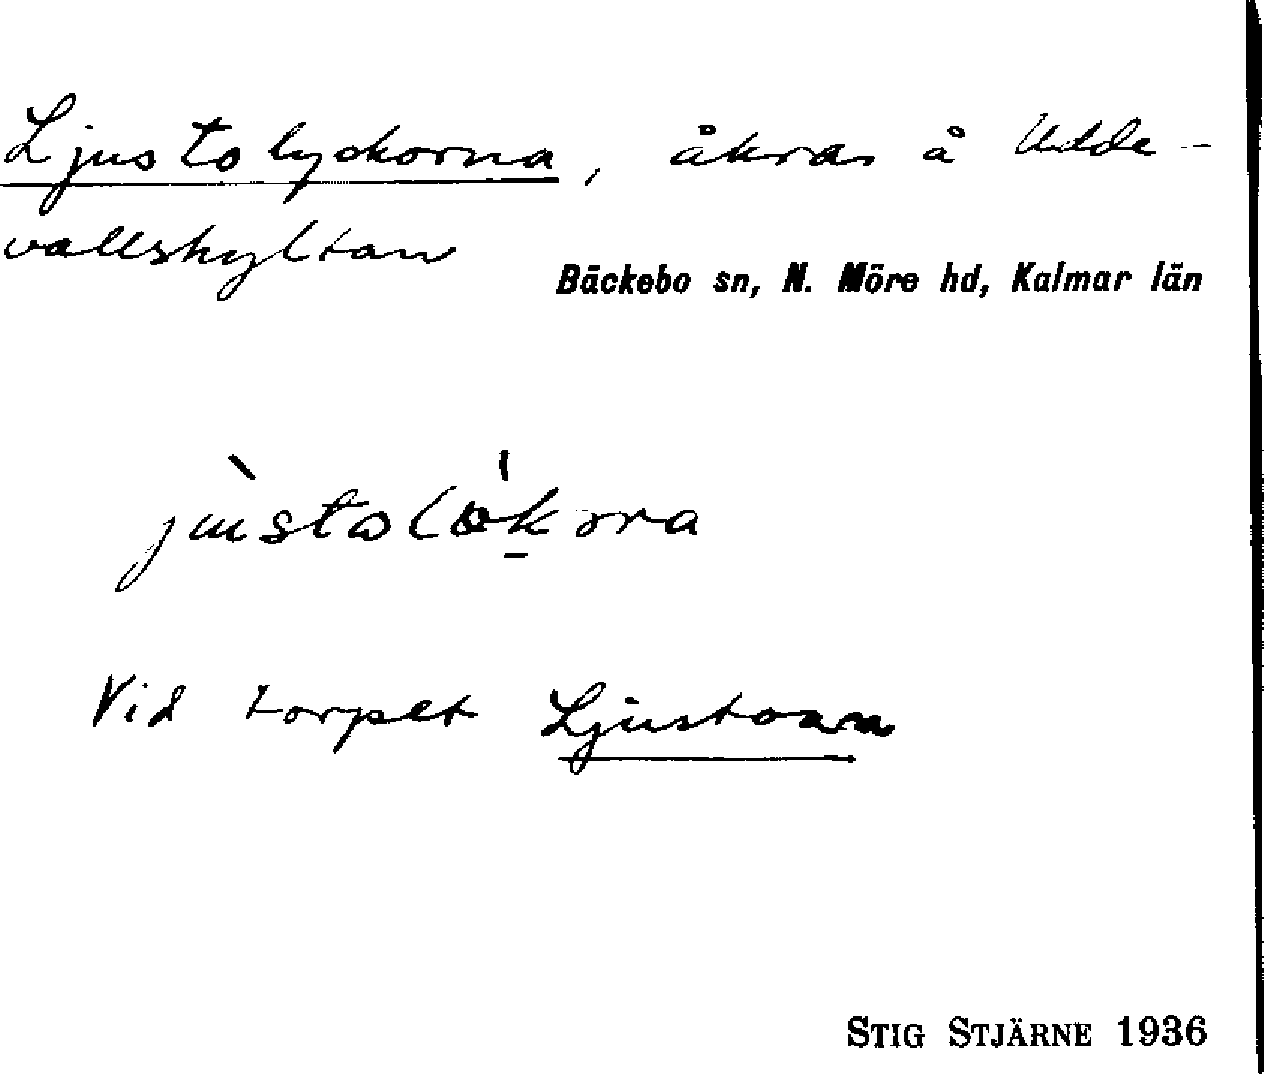 Ljustolyckorna, åkrar å Udde-
vallskyltan
Bäckebo sn, N. Möre hd, Kalmar län
Vid torpet Ljustoan
STIG STJÄRNE 1936